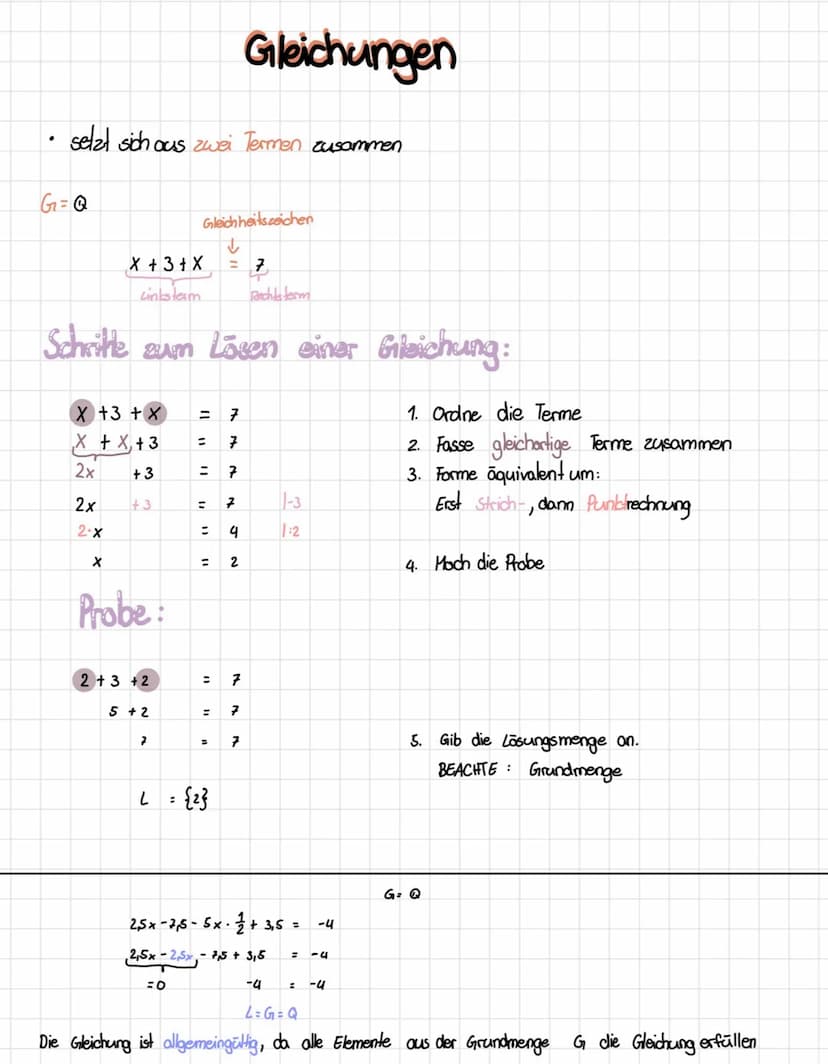 Gleichungen
· setzt sich aus zwei Termen zusammen
G = Q
Gleichheitszeichen
↓
x + 3 + x = 7
Linksterm Rechtsterm
Schritte zum Lösen einer Gleichung:
x + 3 + x = 7 1. Ordne die Terme
x + x + 3 = 7 2. Fasse gleichartige Terme zusammen
2x + 3 = 7 3. Forme äquivalent um:
2x + 3 = 7 |-3 Erst Strich-, dann Punktrechnung
2·x = 4 |:2
x = 2 4. Mach die Probe
Probe:
2 + 3 + 2 = 7
5 + 2 = 7
7 = 7 5. Gib die Lösungsmenge an.
BEACHTE : Grundmenge
L = {2}
G = Q
2,5x - 7,5 - 5x · 1/2 + 3,5 = -4
2,5x - 2,5x - 7,5 + 3,5 = -4
= 0 -4 = -4
L = G = Q
Die Gleichung ist allgemeingültig, da alle Elemente aus der Grundmenge G die Gleichung erfüllen